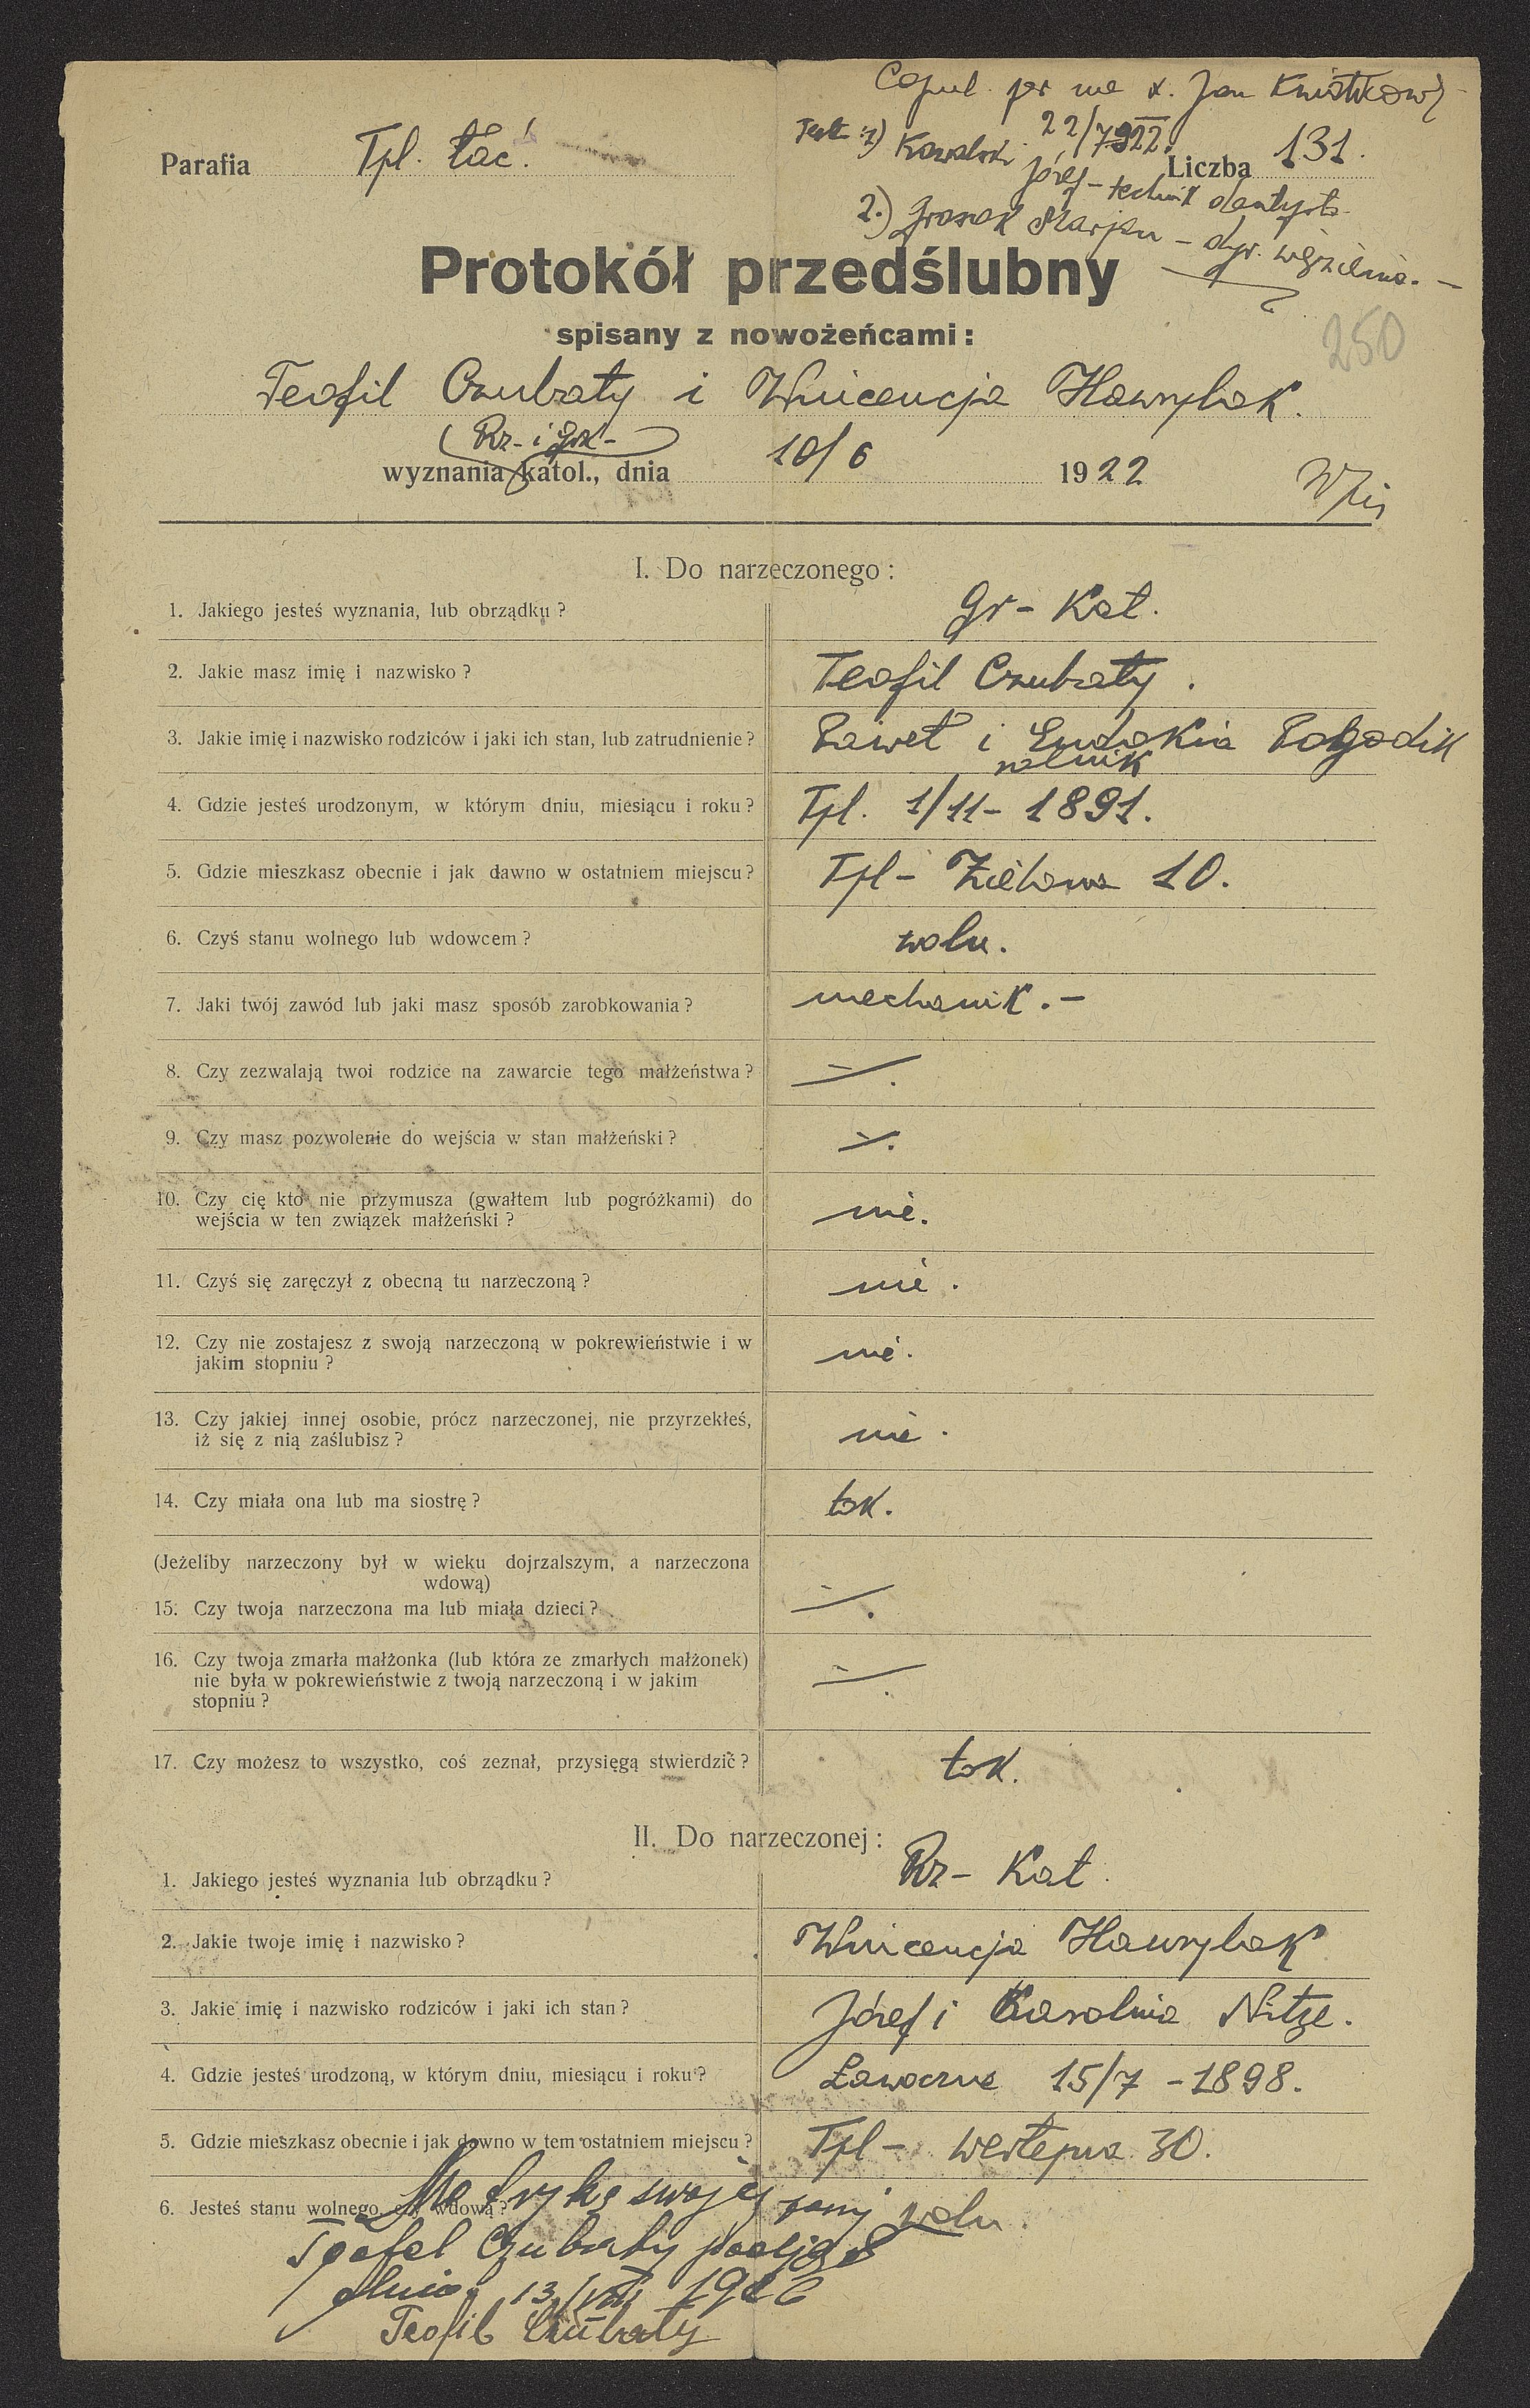 Copul. per me x. Jan
22/7 922.
Parafia Tpl. łać. Liczba 131.
Test. 1) Kowalski Józef – technik dentysta
2.) Marjan – dyr. więzienia. –
Protokół przedślubny
spisany z nowożeńcami:
250
Teofil Czubaty i Wincencja Hawrylak.
Rz- i Gr-
wyznania katol., dnia 10/6 1922
I. Do narzeczonego:
1. Jakiego jesteś wyznania, lub obrządku? Gr- Kat.
2. Jakie masz imię i nazwisko? Teofil Czubaty.
3. Jakie imię i nazwisko rodziców i jaki ich stan, lub zatrudnienie? Paweł i Eudokia
rolnik
4. Gdzie jesteś urodzonym, w którym dniu, miesiącu i roku? Tpl. 1/11- 1891.
5. Gdzie mieszkasz obecnie i jak dawno w ostatniem miejscu? Tpl- 10.
6. Czyś stanu wolnego lub wdowcem? woln.
7. Jaki twój zawód lub jaki masz sposób zarobkowania? mechanik. –
8. Czy zezwalają twoi rodzice na zawarcie tego małżeństwa?
9. Czy masz pozwolenie do wejścia w stan małżeński?
10. Czy cię kto nie przymusza (gwałtem lub pogróżkami) do
wejścia w ten związek małżeński? nie.
11. Czyś się zaręczył z obecną tu narzeczoną? nie.
12. Czy nie zostajesz z swoją narzeczoną w pokrewieństwie i w
jakim stopniu? nie.
13. Czy jakiej innej osobie, prócz narzeczonej, nie przyrzekłeś,
iż się z nią zaślubisz? nie.
14. Czy miała ona lub ma siostrę? tak.
(Jeżeliby narzeczony był w wieku dojrzalszym, a narzeczona
wdową)
15. Czy twoja narzeczona ma lub miała dzieci?
16. Czy twoja zmarła małżonka (lub która ze zmarłych małżonek)
nie była w pokrewieństwie z twoją narzeczoną i w jakim
stopniu?
17. Czy możesz to wszystko, coś zeznał, przysięgą stwierdzić? tak.
II. Do narzeczonej:
1. Jakiego jesteś wyznania lub obrządku? Rz- Kat.
2. Jakie twoje imię i nazwisko? Wincencja Hawrylak
3. Jakie imię i nazwisko rodziców i jaki ich stan? Józef i Karolina Nitze.
4. Gdzie jesteś urodzoną, w którym dniu, miesiącu i roku? Ławoczne 15/7 - 1898.
5. Gdzie mieszkasz obecnie i jak dawno w tem ostatniem miejscu? Tpl- 30.
6. Jesteś stanu wolnego, czy wdową? woln.
Metrykę swojej żony
Teofel Czubaty podjął
dnia 13/VII
Teofil Czubaty